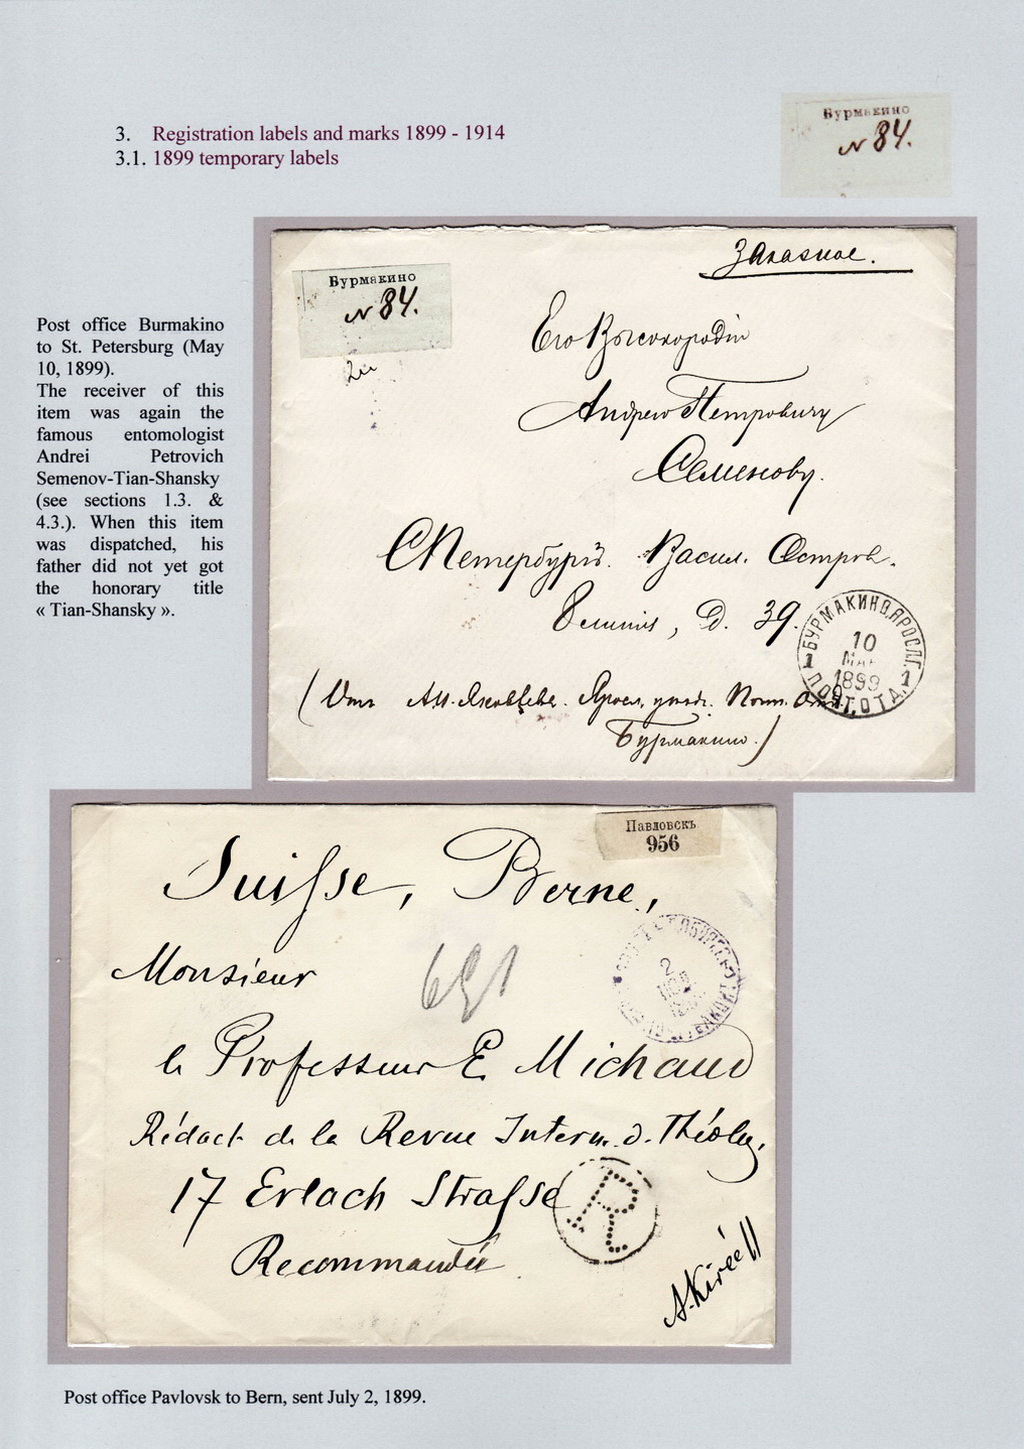 3. Registration labels and marks 1899 - 1914
3.1. 1899 temporary labels
Бурмакино
№ 84.
Post office Burmakino
to St. Petersburg (May
10, 1899).
The receiver of this
item was again the
famous entomologist
Andrei Petrovich
Semenov-Tian-Shansky
(see sections 1.3. &
4.3.). When this item
was dispatched, his
father did not yet got
the honorary title
« Tian-Shansky ».
Бурмакино
№ 84.
Заказное.
Его Высокородію
Андрею Петровичу
Семенову.
СПетербургъ. Васил. Остров.
8 линія, д. 39.
БУРМАКИНО, ЯРОСЛ. Г.
10
МАЯ
1899
1 1
ПОЧТ. ОТД.
(Отъ Ал. Яковлева. Яросл. уѣзд. Почт. Отд.
Бурмакино.)
Павловскъ
956
Suisse, Berne,
2
Monsieur
691
le Professeur E. Michaud
Rédact. de la Revue Intern. d. Théolog.
17 Erlach Strasse
R
Recommandée
A. Kiréeff
Post office Pavlovsk to Bern, sent July 2, 1899.